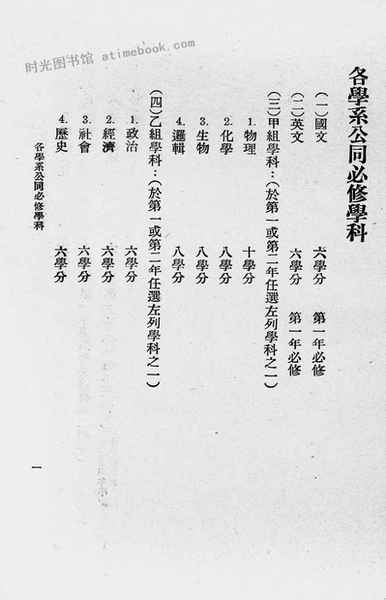 时光图书馆 atimebook.com
各學系公同必修學科
(一)國文 六學分 第一年必修
(二)英文 六學分 第一年必修
(三)甲組學科:(於第一或第二年任選左列學科之一)
1. 物理 十學分
2. 化學 八學分
3. 生物 八學分
4. 邏輯 八學分
(四)乙組學科:(於第一或第二年任選左列學科之一)
1. 政治 六學分
2. 經濟 六學分
3. 社會 六學分
4. 歷史 六學分
各學系公同必修學科
一